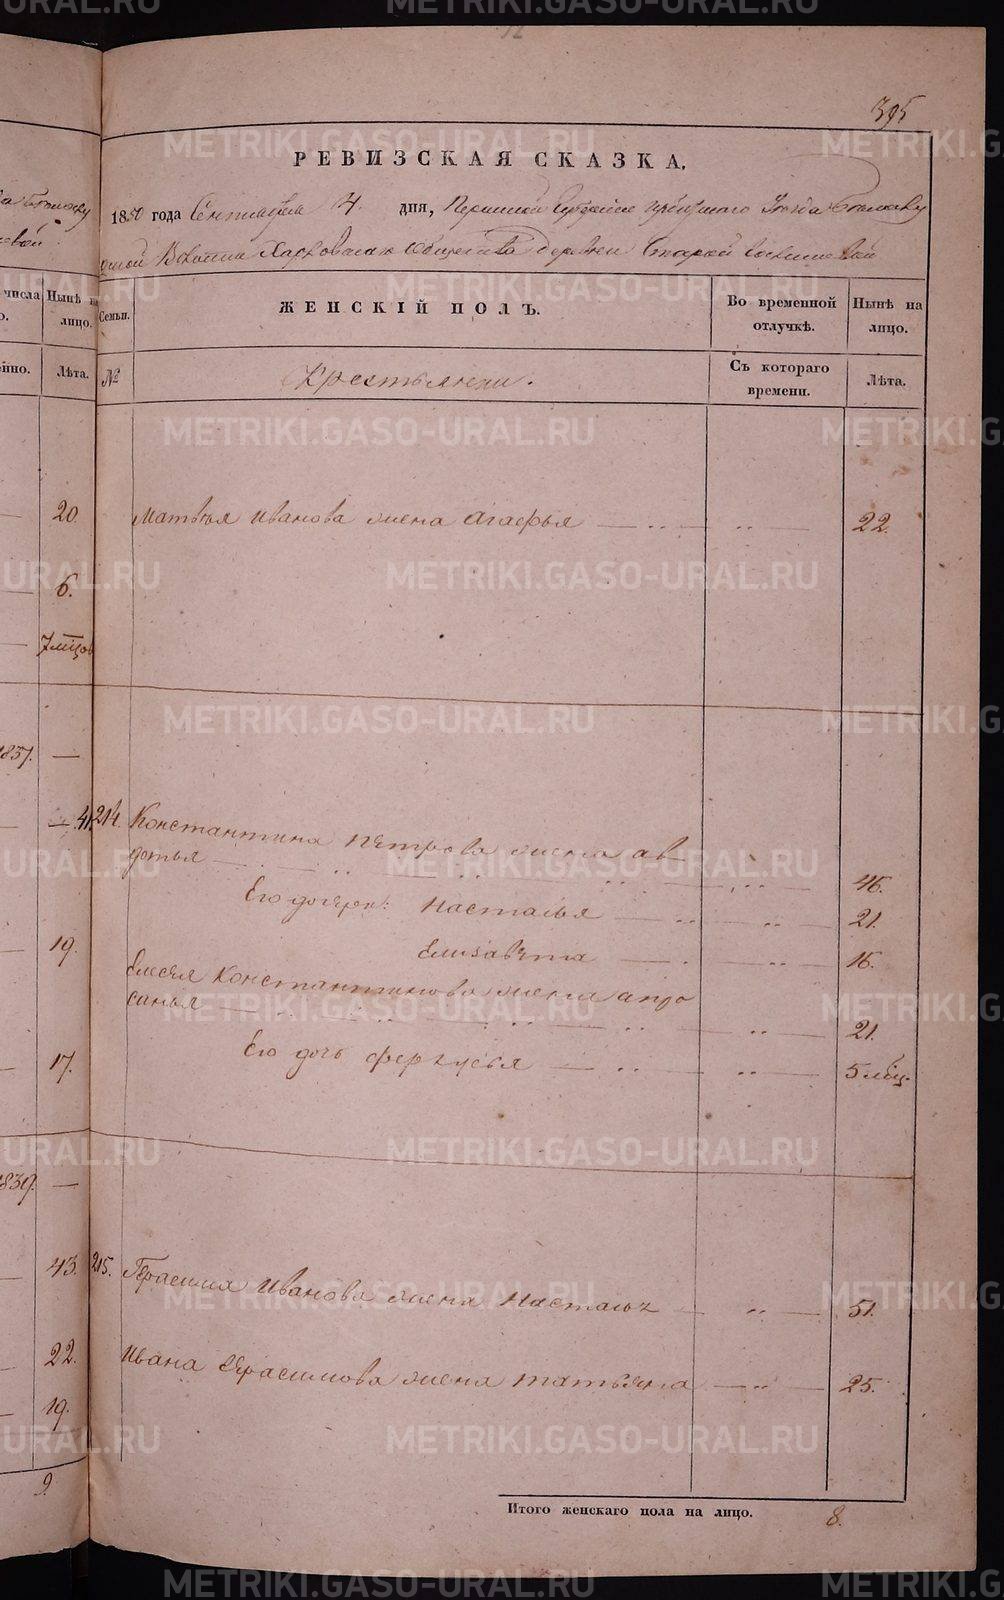 395
РЕВИЗСКАЯ СКАЗКА.
1850 года Сентября 4 дня, Пермской Губернии Уезда
Волости Общества деревни Старой
числа
Нынѣ на лицо.
Лѣта.
Семьи.
№
ЖЕНСКІЙ ПОЛЪ.
Крестьянки.
Во временной отлучкѣ.
Съ котораго времени.
Нынѣ на лицо.
Лѣта.
20 Матвѣя Иванова жена Агафья 22.
6.
7 мцов
1837. —
41. 214. Константина Петрова жена Ав
дотья 46.
Его дочери: Насталья 21.
19. Елизавѣта 16.
Елисѣя Константинова жена
21.
17. Его дочь 5 мц.
1839. —
43. 215. Герасима Иванова жена Настальѧ 51.
22. Ивана Герасимова жена Татьяна 25.
19.
9.
Итого женскаго пола на лицо. 8.
METRIKI.GASO-URAL.RU